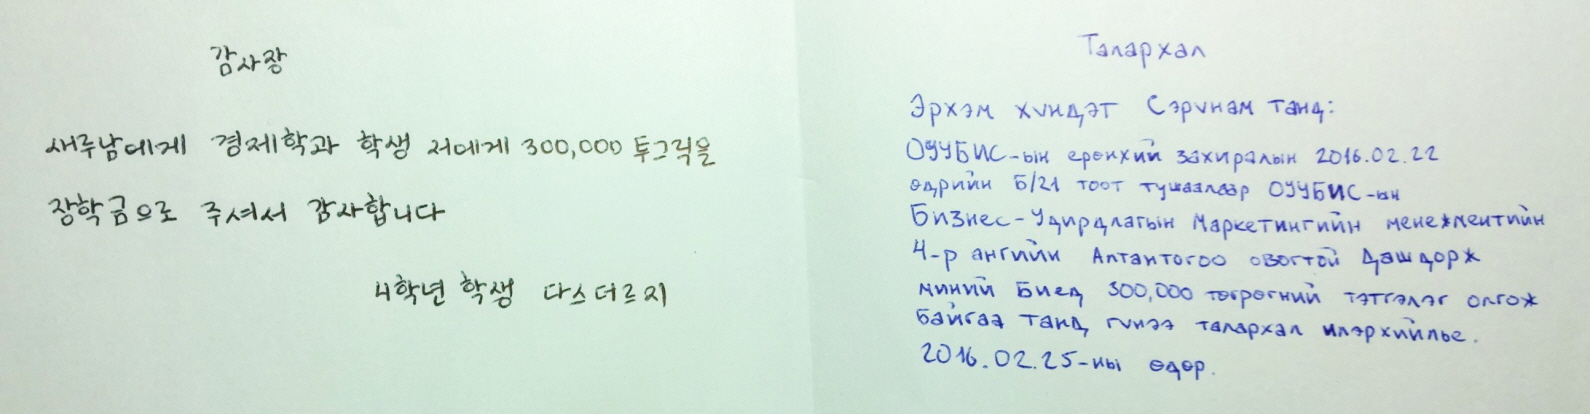 감사장
새루남에게 경제학과 학생 저에게 300,000 투그릭을
장학금으로 주셔서 감사합니다
4학년 학생 다스더르지
Талархал
Эрхэм хүндэт Сэрунам танд:
ОУУБИС-ын ерөнхий захиралын 2016.02.22
өдрийн Б/21 тоот тушаалаар ОУУБИС-ын
Бизнес-Удирдлагын Маркетингийн менежментийн
4-р ангийн Алтантогоо овогтой Дашдорж
миний биед 300,000 төгрөгний тэтгэлэг олгож
байгаа танд гүнээ талархал илэрхийлье.
2016.02.25-ны өдөр.